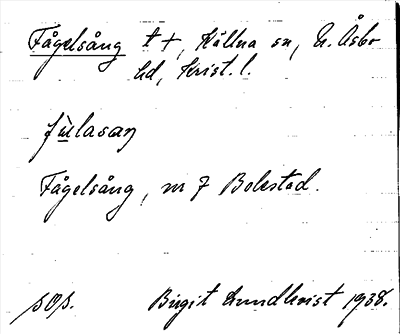 Fågelsång t +, Källna sn, N. Åsbo
hd, Krist. l.
fùlasaŋ
Fågelsång, m 7 Bolestad.
sOs.
Birgit Lundkvist 1938.